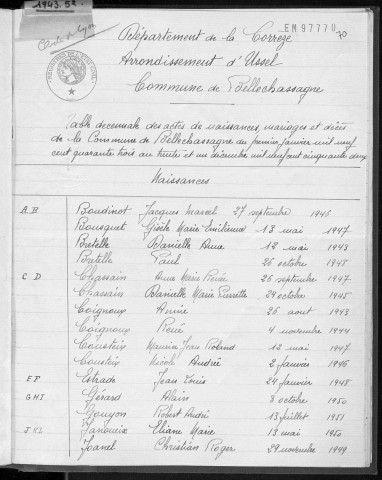 1943.52
EM 9777U
70
Département de la Corrèze
Arrondissement d'Ussel
Commune de Bellechassagne
Table décennale des actes de naissances, mariages et décès
de la Commune de Bellechassagne du premier janvier mil neuf
cent quarante trois au trente et un décembre mil neuf cent cinquante deux
Naissances
A.B Boudinot Jacques Marcel 27 septembre 1946
Bousquet Gisèle Marie Emilienne 18 mai 1947
Bretelle Danielle Anna 12 mai 1943
Bretelle Paul 26 octobre 1948
C D Chassain Anne Marie Renée 26 septembre 1947
Chassain Danielle Marie Pierrette 24 octobre 1945
Coignoux Annie 26 août 1949
Coignoux René 4 novembre 1944
Cousteix Maurice Jean Roland 12 mai 1947
Cousteix Nicole Andrée 2 janvier 1946
E F Estrade Jean Louis 24 janvier 1948
G H I Gérard Alain 8 octobre 1950
Gouyon Robert André 13 juillet 1951
J K L Janoueix Eliane Marie 13 mai 1950
Joanel Christian Roger 29 novembre 1949